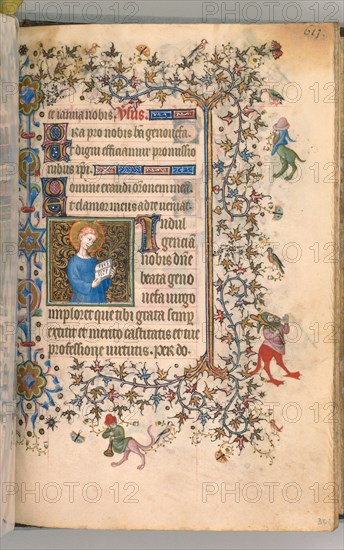 617.
et carina nobis. Vsus.
Ora pro nobis bta genovefa.
Vt digni efficiamur promissio
nibus xpi.
Domine exaudi oronem mea
Et clamor meus ad te veniat.
Indul
genciā
nobis dñe
beata geno
vefa virgo
imploret que tibi grata semp
extitit et merito castitatis et tue
professione virtutis. Per do.
PHOTO12